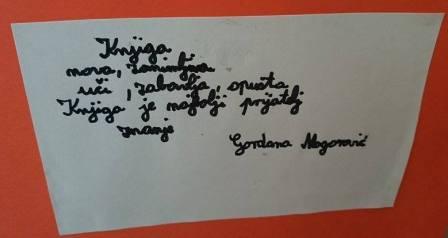 Knjiga
nova, zanimljiva
uči, zabavlja, opušta
Knjiga je najbolji prijatelj
znanje
Gordana